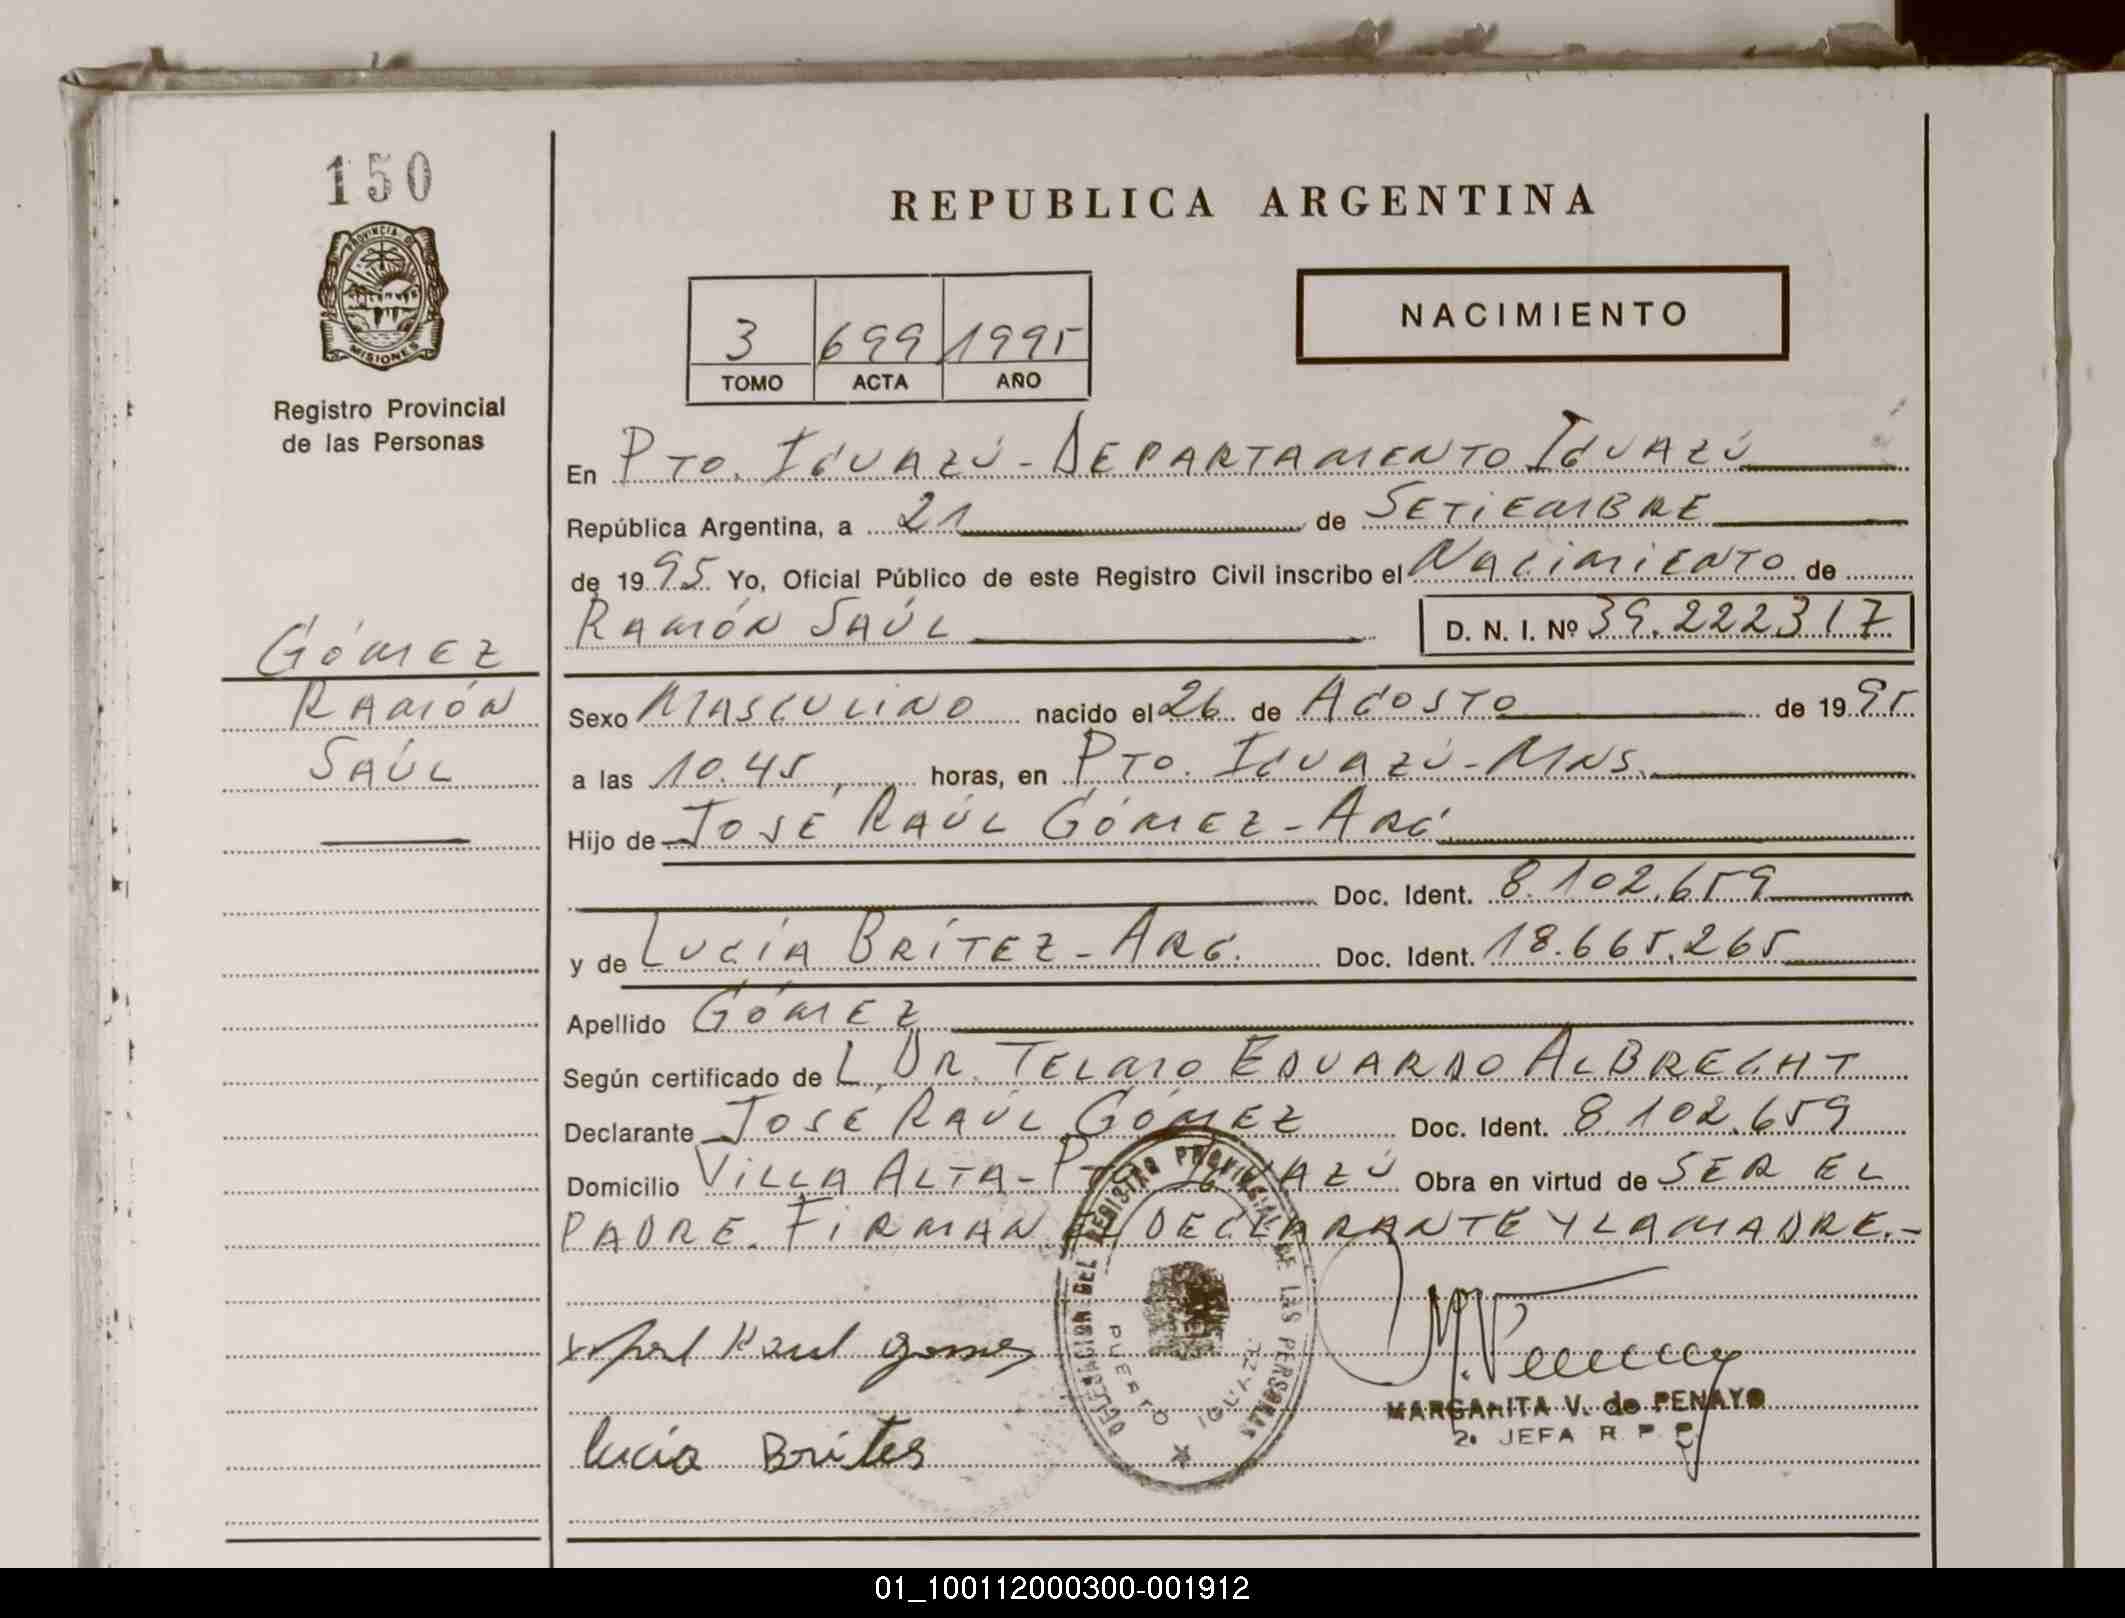 150
PROVINCIA DE
MISIONES
Registro Provincial
de las Personas
REPUBLICA ARGENTINA
3 699 1995
TOMO ACTA AÑO
NACIMIENTO
En PTO. IGUAZÚ - DEPARTAMENTO IGUAZÚ
República Argentina, a 21 de SETIEMBRE
de 1995. Yo, Oficial Público de este Registro Civil inscribo el NACIMIENTO de
RAMÓN SAÚL D. N. I. Nº 39.222317
GÓMEZ
RAMÓN
SAÚL
Sexo MASCULINO nacido el 26 de AGOSTO de 1995
a las 10.45 horas, en PTO. IGUAZÚ - MNS.
Hijo de JOSÉ RAÚL GÓMEZ - ARG.
Doc. Ident. 8.102.659
y de LUCÍA BRÍTEZ - ARG. Doc. Ident. 18.665.265
Apellido GÓMEZ
Según certificado de L DR. TELMO EDUARDO ALBRECHT
Declarante JOSÉ RAÚL GÓMEZ Doc. Ident. 8.102.659
Domicilio VILLA ALTA - PTO. IGUAZÚ Obra en virtud de SER EL
PADRE. FIRMAN EL DECLARANTE Y LA MADRE.-
DELEGACION DEL REGISTRO PROVINCIAL DE LAS PERSONAS
PUERTO IGUAZU
Raul Gomez
MARGARITA V. de PENAYO
2ª JEFA R. P. P.
Lucia Brites
01_100112000300-001912